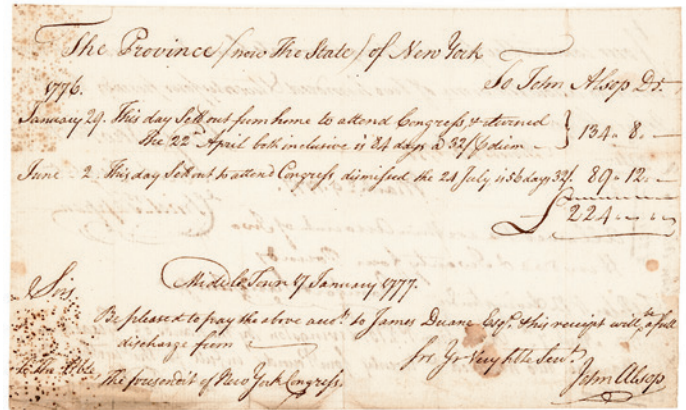 The Province /now The State/ of New York
1776. To John Alsop Dr.
January 29. This day Sett out from home to attend Congress, & returned
the 22d April both inclusive is 84 days a 32/ diem } 134.. 8.. —
June 2 This day Sett out to attend Congress dismissed the 24 July is 56 days 32/. 89.. 12.. —
£ 224.. .. ..
Middle Town 17 January 1777.
Sir,
Be pleased to pay the above acct. to James Duane Esqr. & this receipt will be a full
discharge from
Sir Yr
To The
The president of New York Congress.
John Alsop